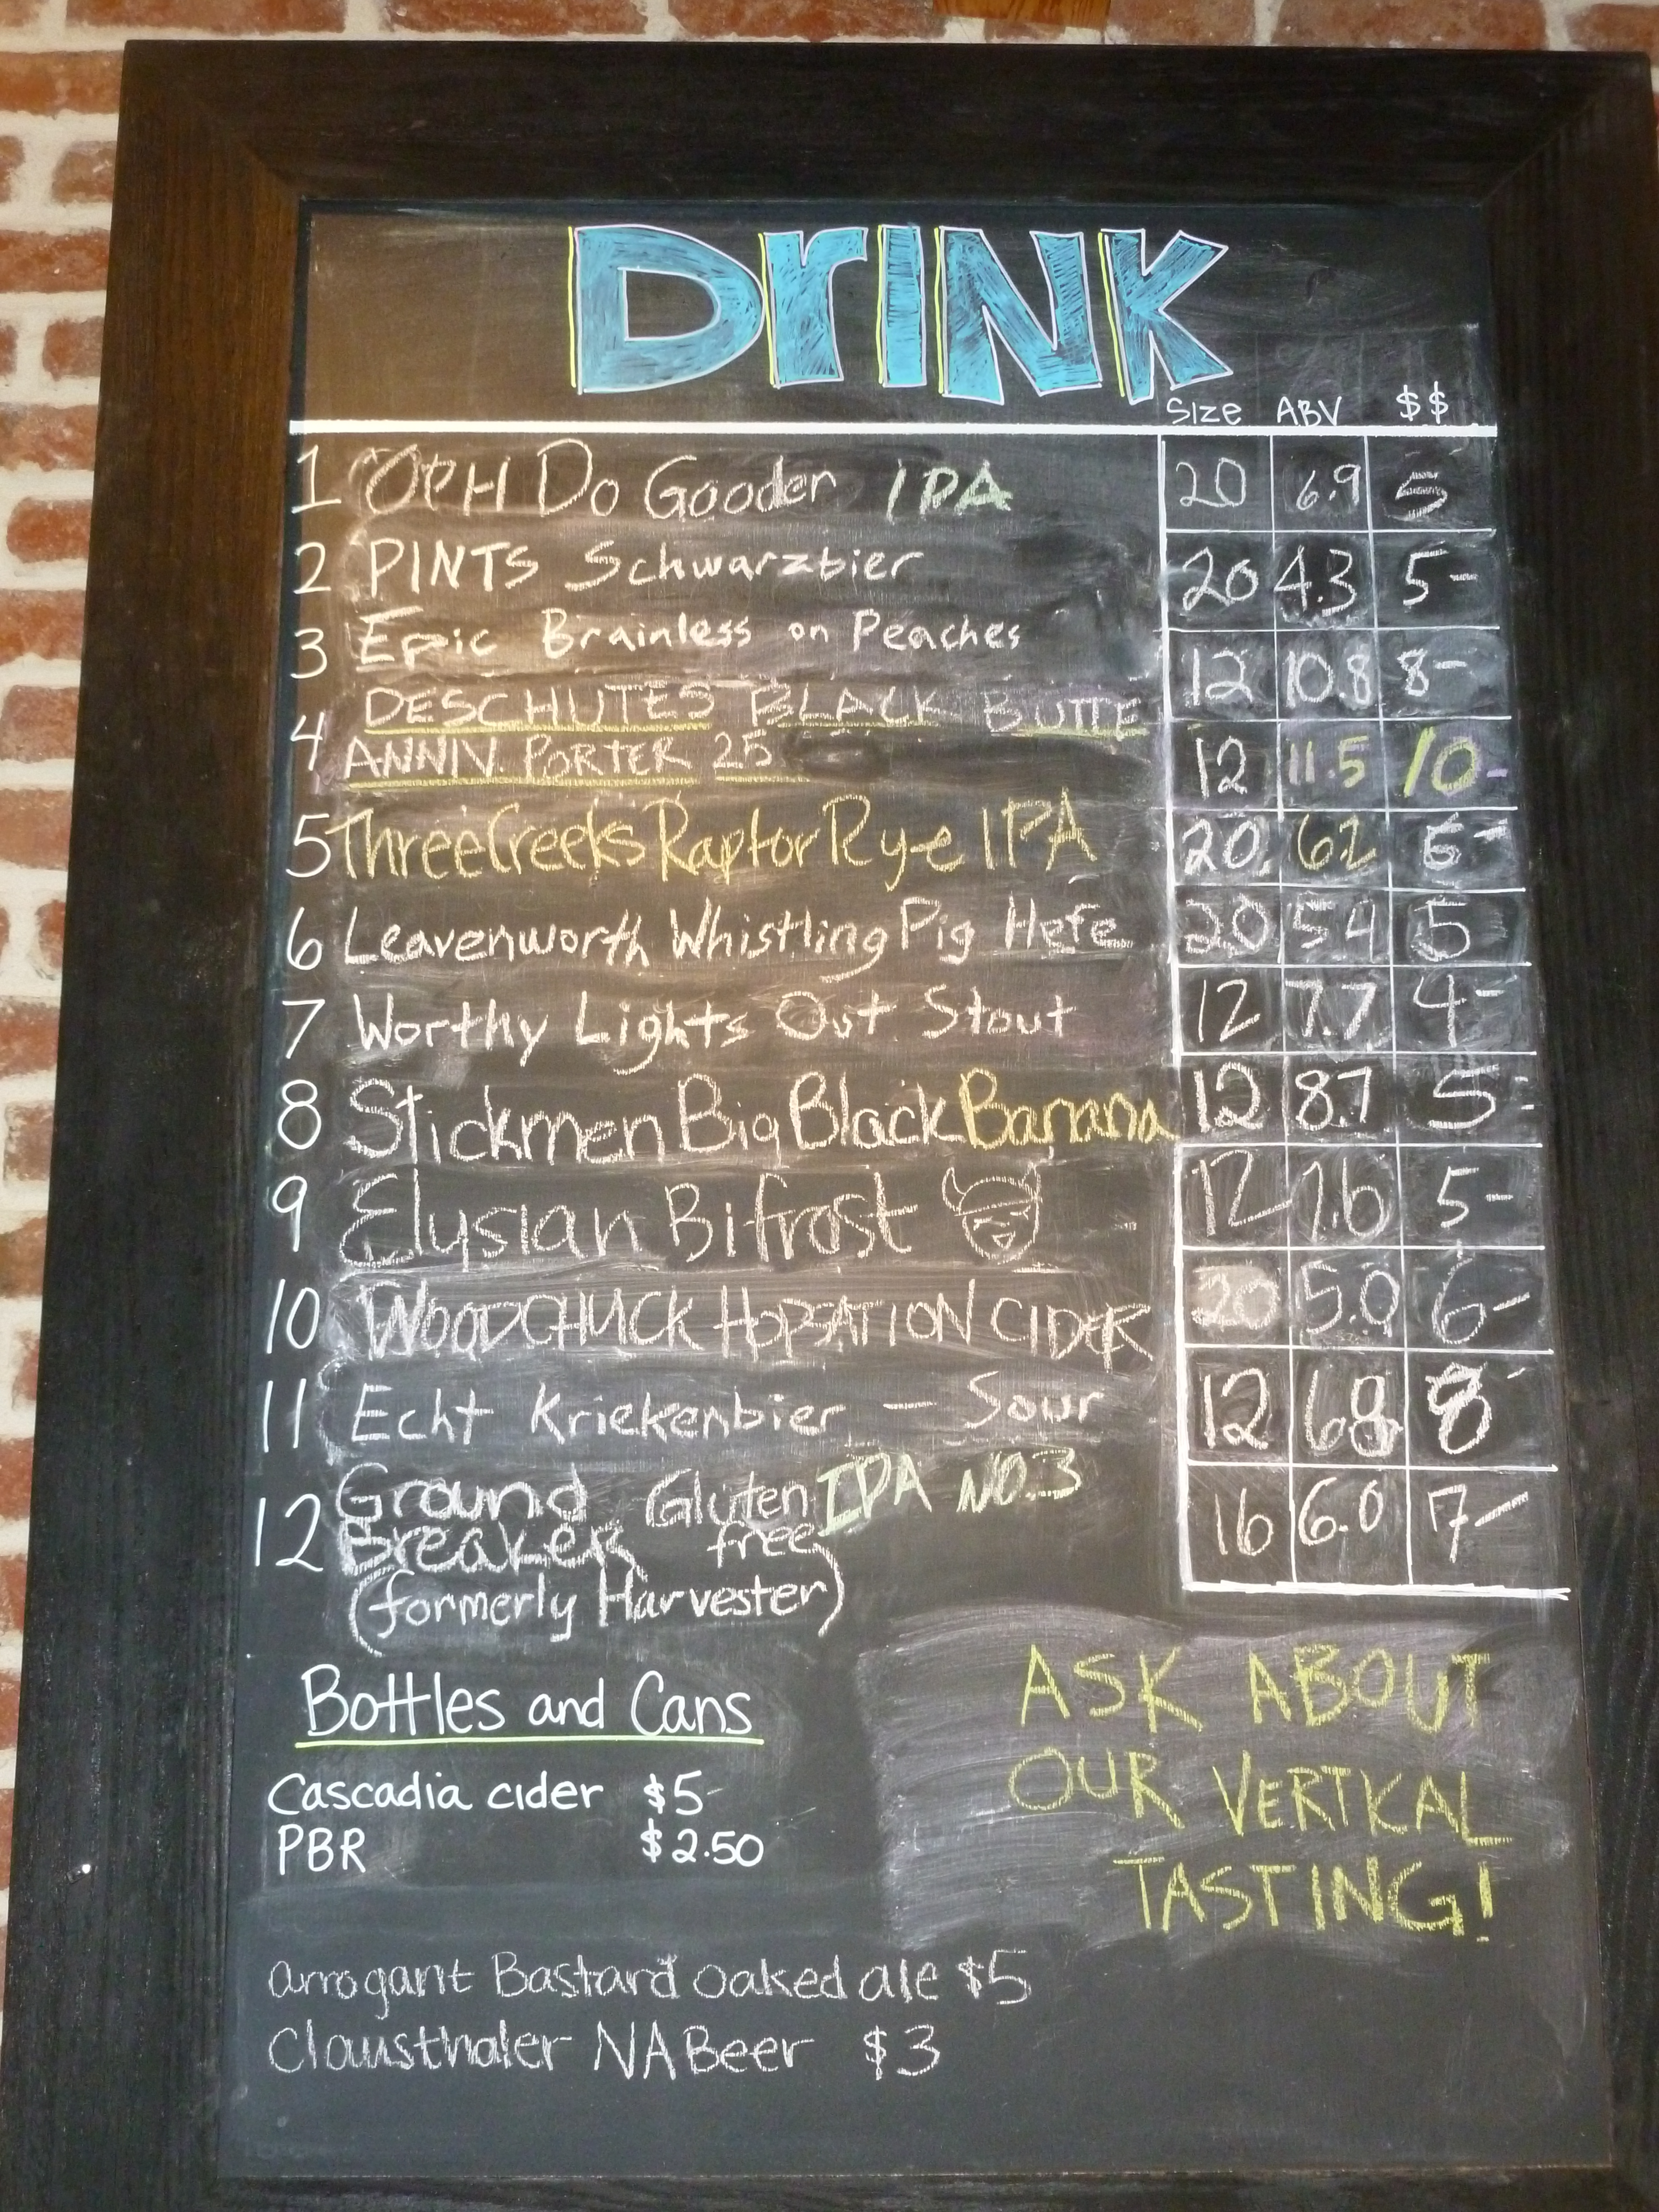 DrINK
Size ABV $$
1 OPH Do Gooder IPA 20 6.9 5
2 PINTS Schwarzbier 20 4.3 5-
3 Epic Brainless on Peaches 12 10.8 8-
DESCHUTES BLACK BUTTE
4 ANNIV. PORTER 25 12 11.5 10-
5 Three Creeks Raptor Rye IPA 20 6-
6 Leavenworth Whistling Pig Hefe 20 5.4 5
7 Worthy Lights Out Stout 12 7.7 4-
8 Stickmen Big Black Banana 12 8.7 5-
9 Elysian Bifrost 12 7.6 5-
10 WOODCHUCK HOPSATION CIDER 20 5.0 6-
11 Echt Kriekenbier - Sour 12 6.8 8-
12 Ground Gluten IPA NO.3 16 6.0 7-
Breaker free
(formerly Harvester)
Bottles and Cans
Cascadia cider $5-
PBR $2.50
ASK ABOUT
OUR VERTICAL
TASTING!
arrogant Bastard oaked ale $5
Clausthaler NA Beer $3